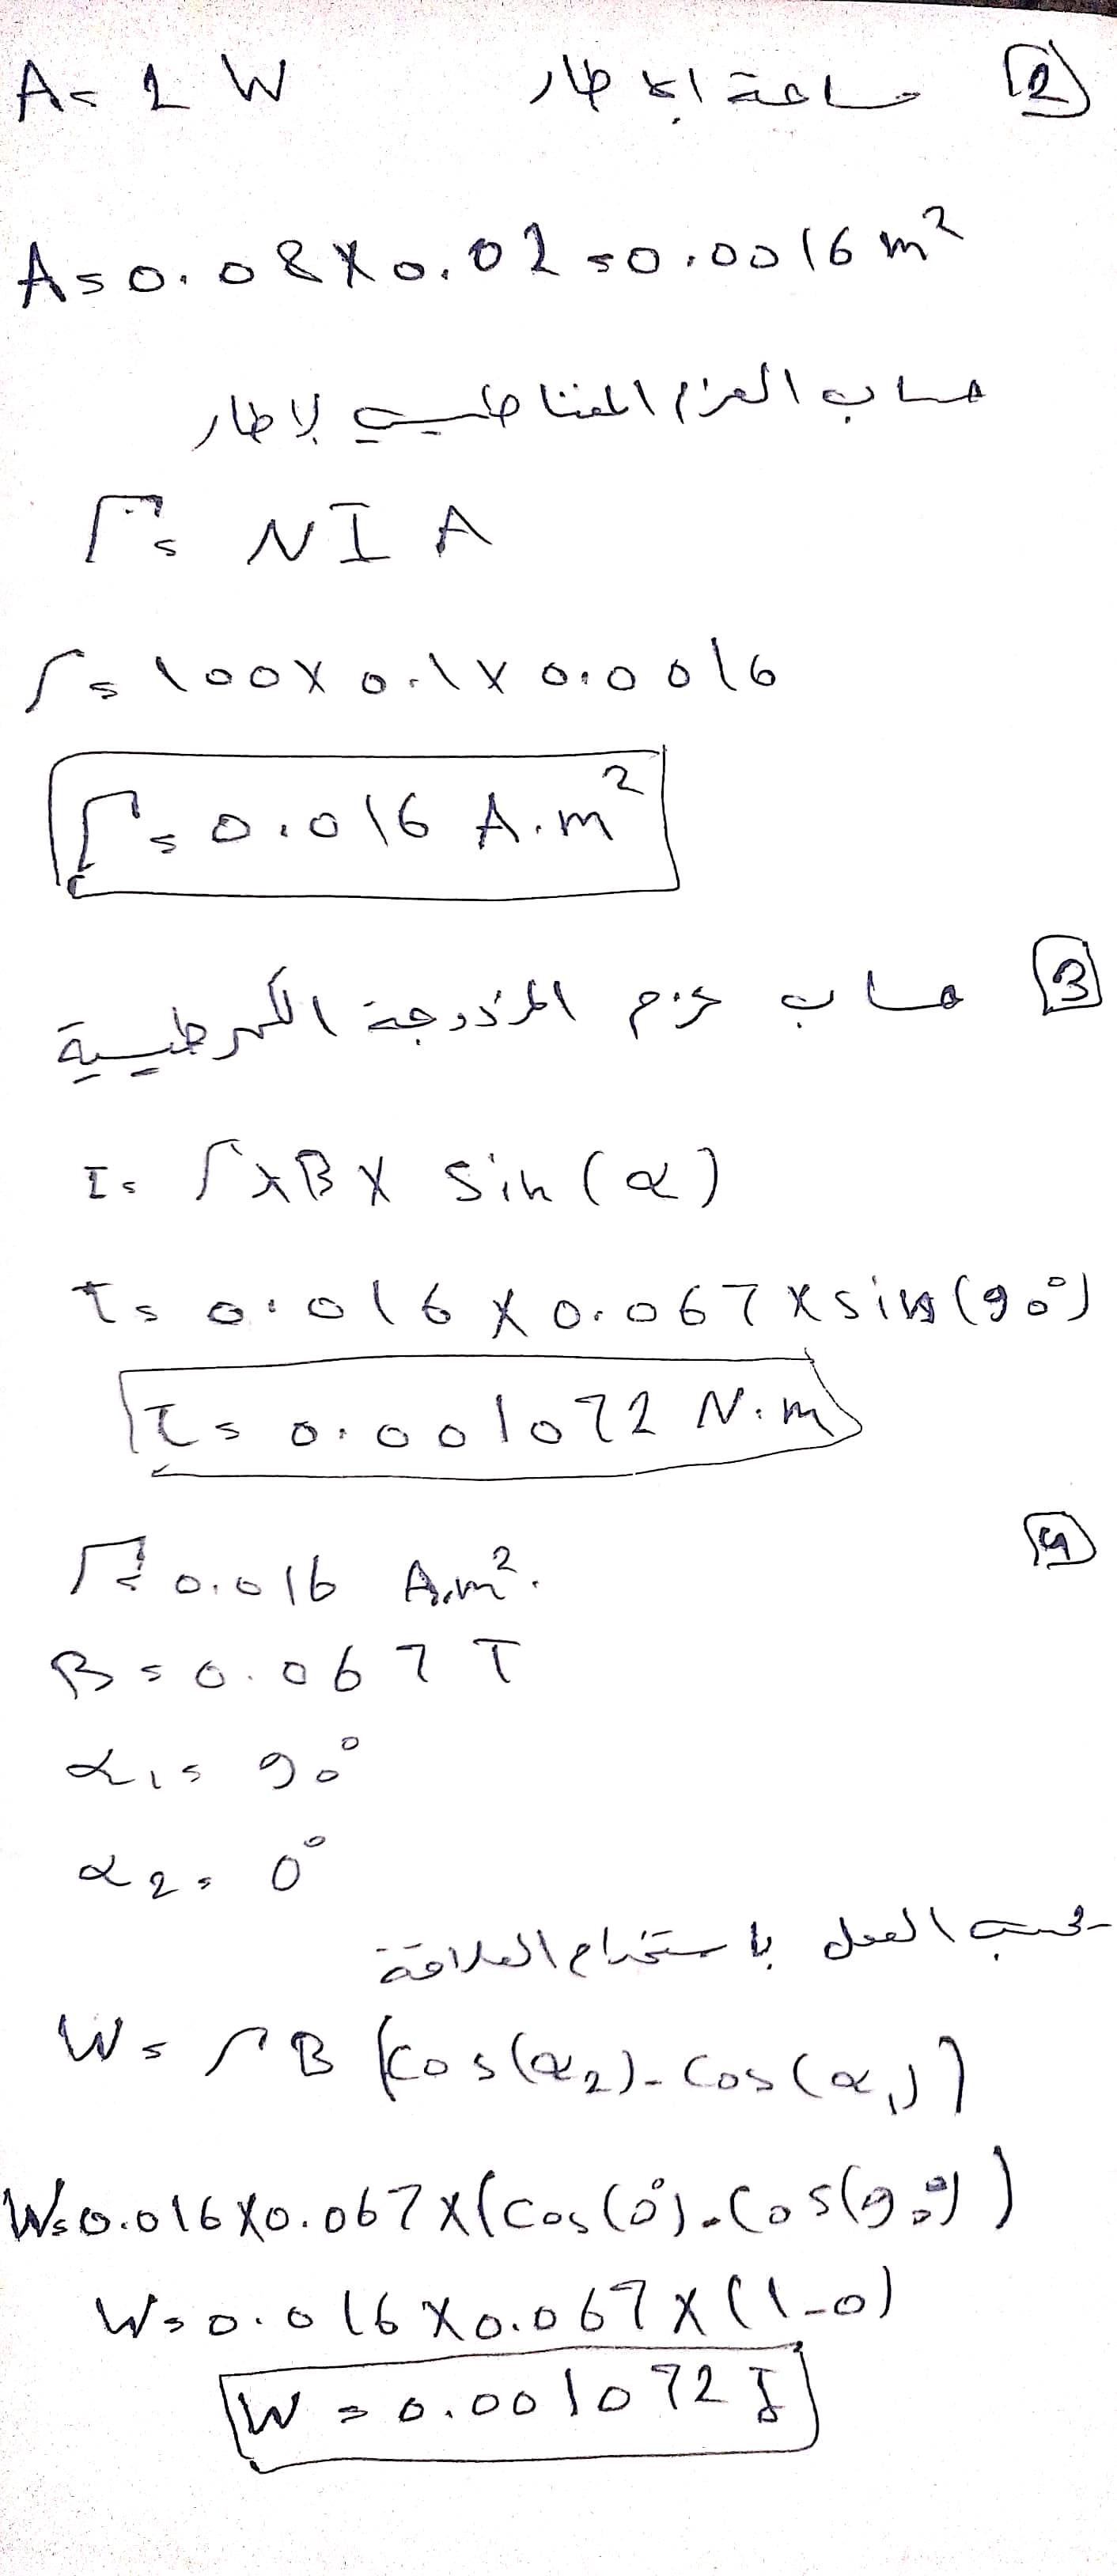 2 مساحة الإطار A = L W
A = 0.08 × 0.02 = 0.0016 m²
حساب العزم المغناطيسي لإطار
Γ = N I A
Γ = 100 × 0.1 × 0.0016
Γ = 0.016 A.m²
3 حساب عزم المزدوجة الكهرطيسية
τ = Γ × B × sin(α)
τ = 0.016 × 0.067 × sin(90°)
τ = 0.001072 N.m
4
Γ = 0.016 A.m².
B = 0.067 T
α1 = 90°
α2 = 0°
نحسب العمل باستخدام العلاقة
W = Γ B (cos(α2) - cos(α1))
W = 0.016 × 0.067 × (cos(0°) - cos(90°))
W = 0.016 × 0.067 × (1-0)
W = 0.001072 J